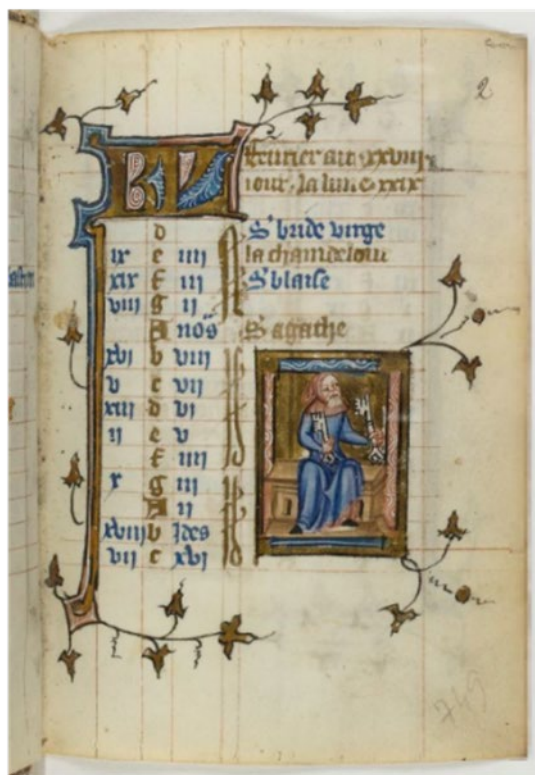 2
KL feurier a xxviij
iour. la lune xxix
d S bride virge
ix e iiij la chandelour
xix f iij S blaise
viij g ij
A nos S agathe
xvi b viij
v c vij
xiij d vi
ij e v
f iiij
x g iij
A ij
xviij b Ides
vij c xvi
749